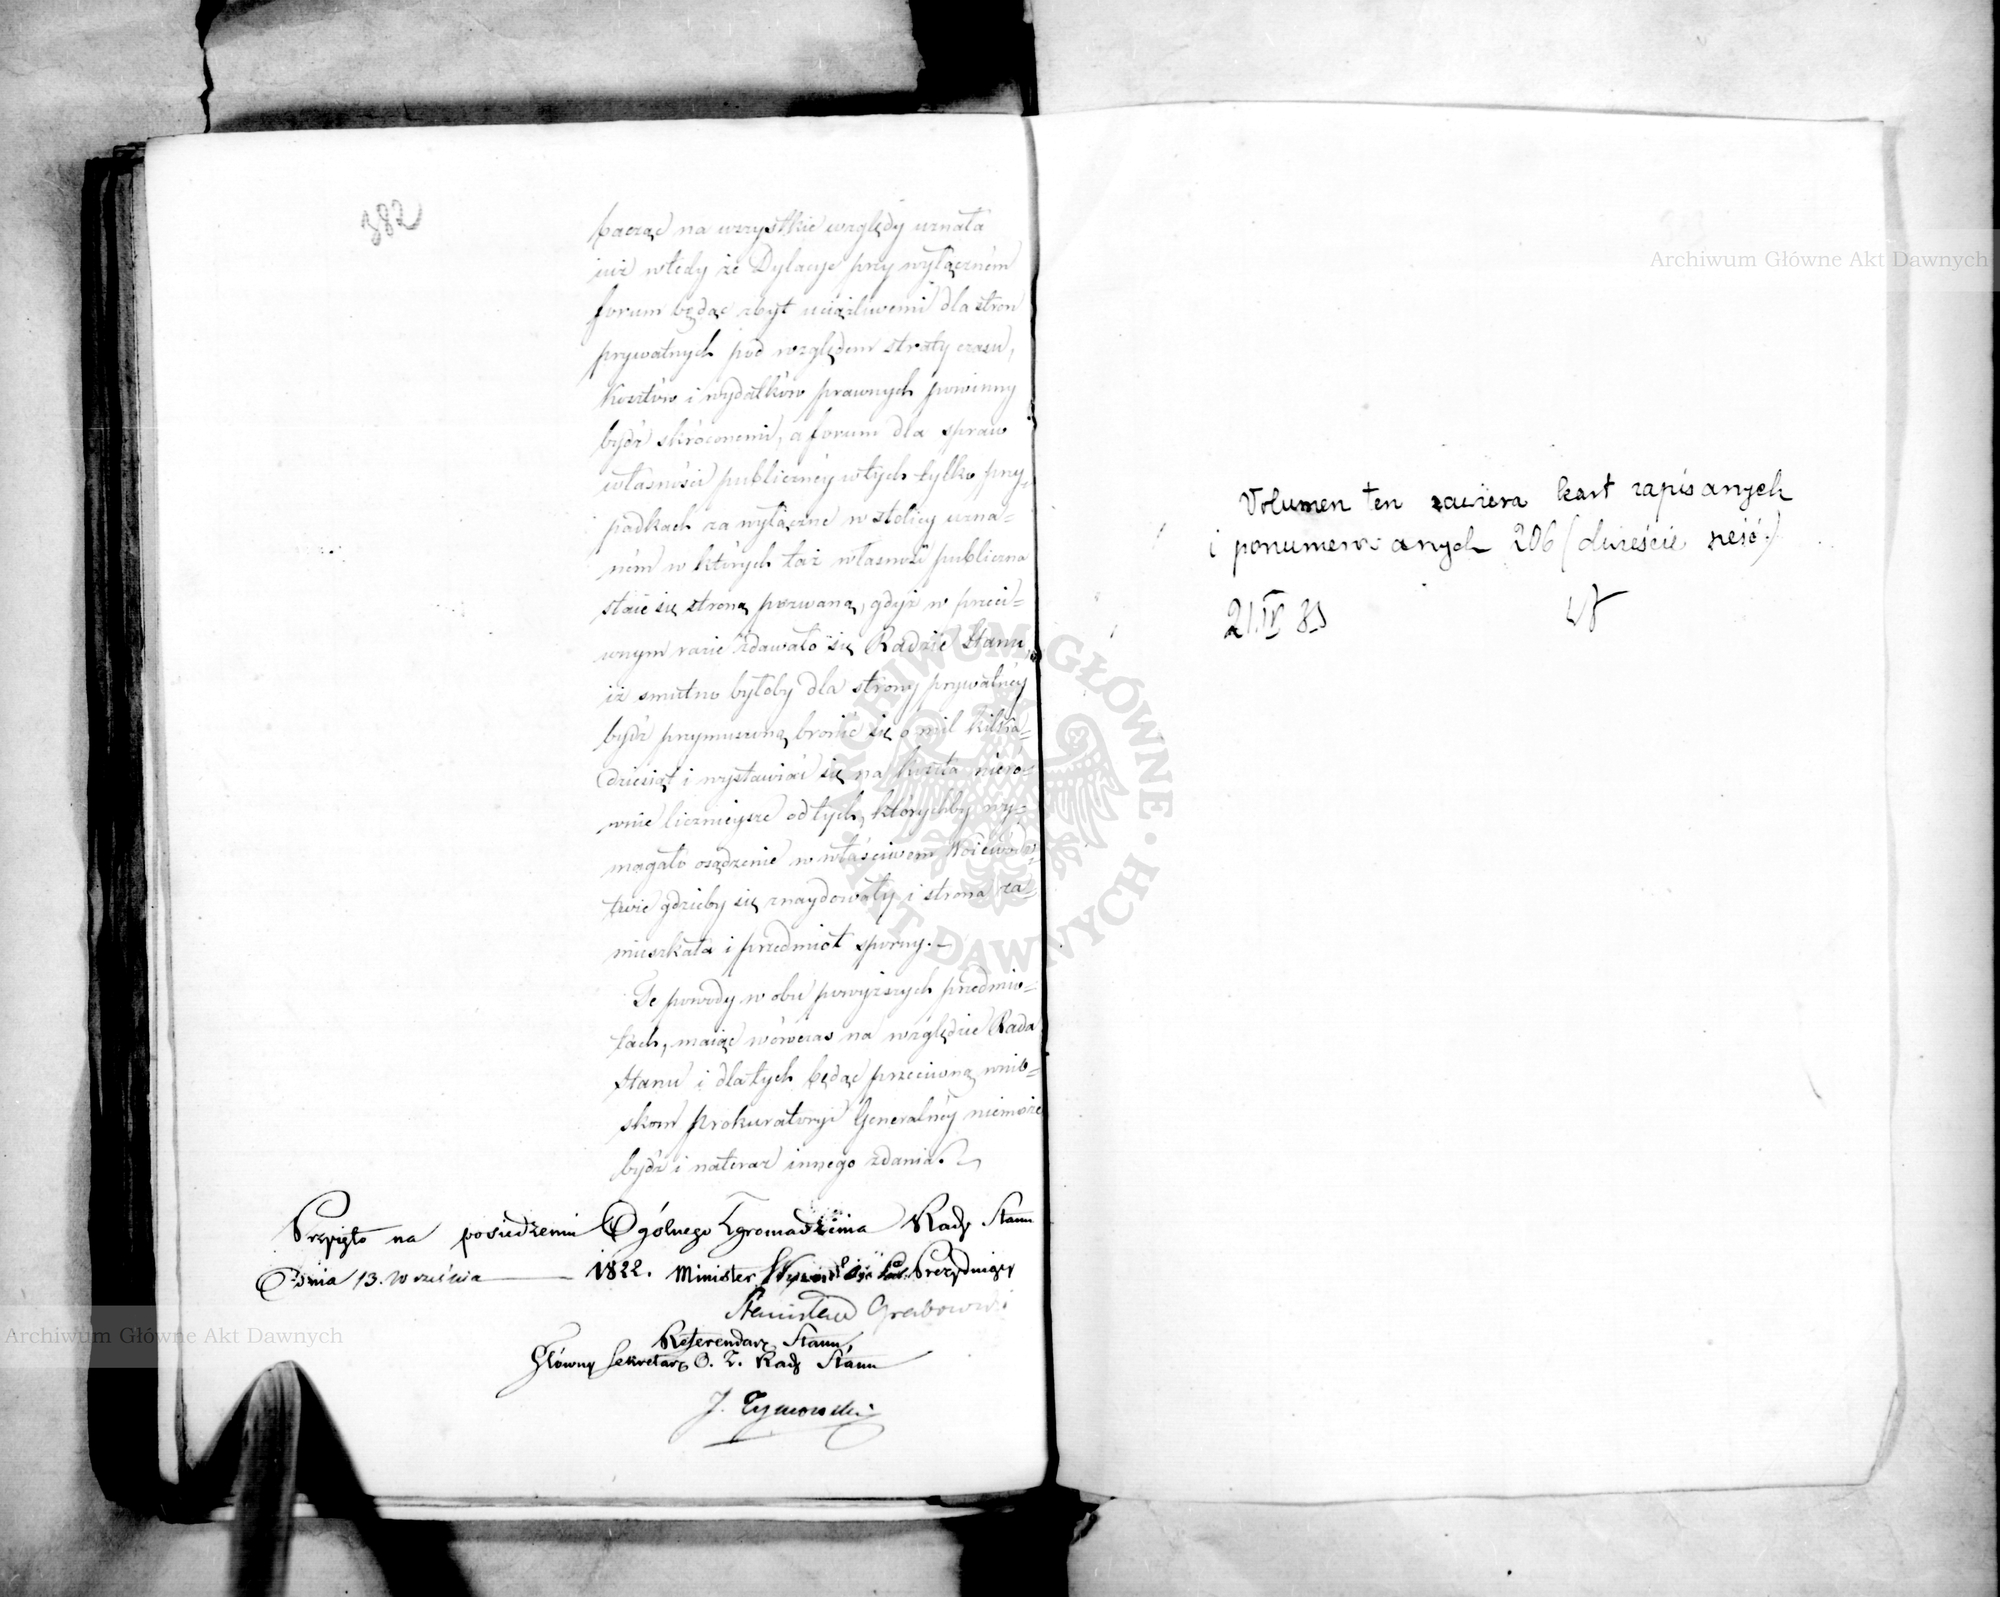 382
bacząc na wszystkie względy uznała
iuż wtedy że Dylacye przy wyłącznem
forum będąc zbyt uciążliwemi dla stron
prywatnych pod względem straty czasu,
kosztów i wydatków prawnych powinny
bydź skróconemi, a forum dla spraw
własności publiczney w tych tylko przy-
padkach za wyłączne w stolicy uzna-
ném w których taż własność publiczna
staie się stroną pozwaną, gdyż w przeci-
wnym razie zdawało się Radzie Stanu,
iż smutno byłoby dla strony prywatnéy
bydź przymuszoną bronić się o mil kilka-
dziesiąt i wystawiać się na koszta nieró-
wnie licznieysze od tych, którychby wy-
magało osądzenie w właściwem Woiewódz-
twie gdzieby się znaydowały i strona za-
mieszkała i przedmiot sporny.–
Te powody w obu powyższych przedmio-
tach, maiąc wówczas na względzie Rada
Stanu i dla tych będąc przeciwną wnio-
skom Prokuratoryi Generalnéy niemoże
bydź i nateraz innego zdania.
Przyięto na posiedzeniu Ogólnego Zgromadzenia Rady Stanu
Dnia 13. Września 1822. Minister Prezyduiący
Stanisław Grabowski
Referendarz Stanu
Główny Sekretarz O. Z. Rady Stanu
J. Tymowski
Volumen ten zawiera kart zapisanych
i ponumerowanych 206 (dwieście sześć.)
21.IV
Archiwum Główne Akt Dawnych
Archiwum Główne Akt Dawnych
ARCHIWUM GŁÓWNE • AKT DAWNYCH •